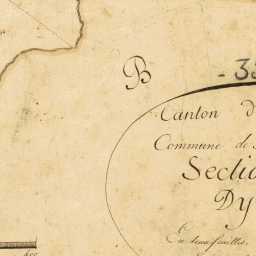 B
- 33
Canton d
Commune de
Sectio
Dy
En deux feuilles.